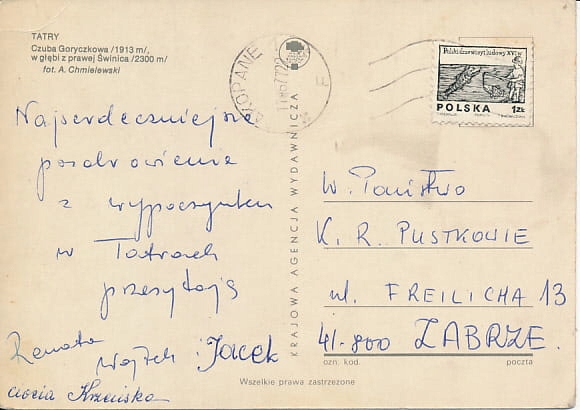 TATRY
Czuba Goryczkowa /1913 m/,
w głębi z prawej Świnica /2300 m/
fot. A. Chmielewski
ZAKOPANE
Polski drzeworyt ludowy XVI w.
POLSKA 1ZŁ
Najserdeczniejsze
pozdrowienie
z wypoczynku
w Tatrach
przesyłają
Renata
Wojtek i Jacek
ciocia
KRAJOWA AGENCJA WYDAWNICZA
W. Państwo
K. R. PUSTKOWIE
ul. FREILICHA 13
41-800 ZABRZE.
ozn. kod. poczta
Wszelkie prawa zastrzeżone